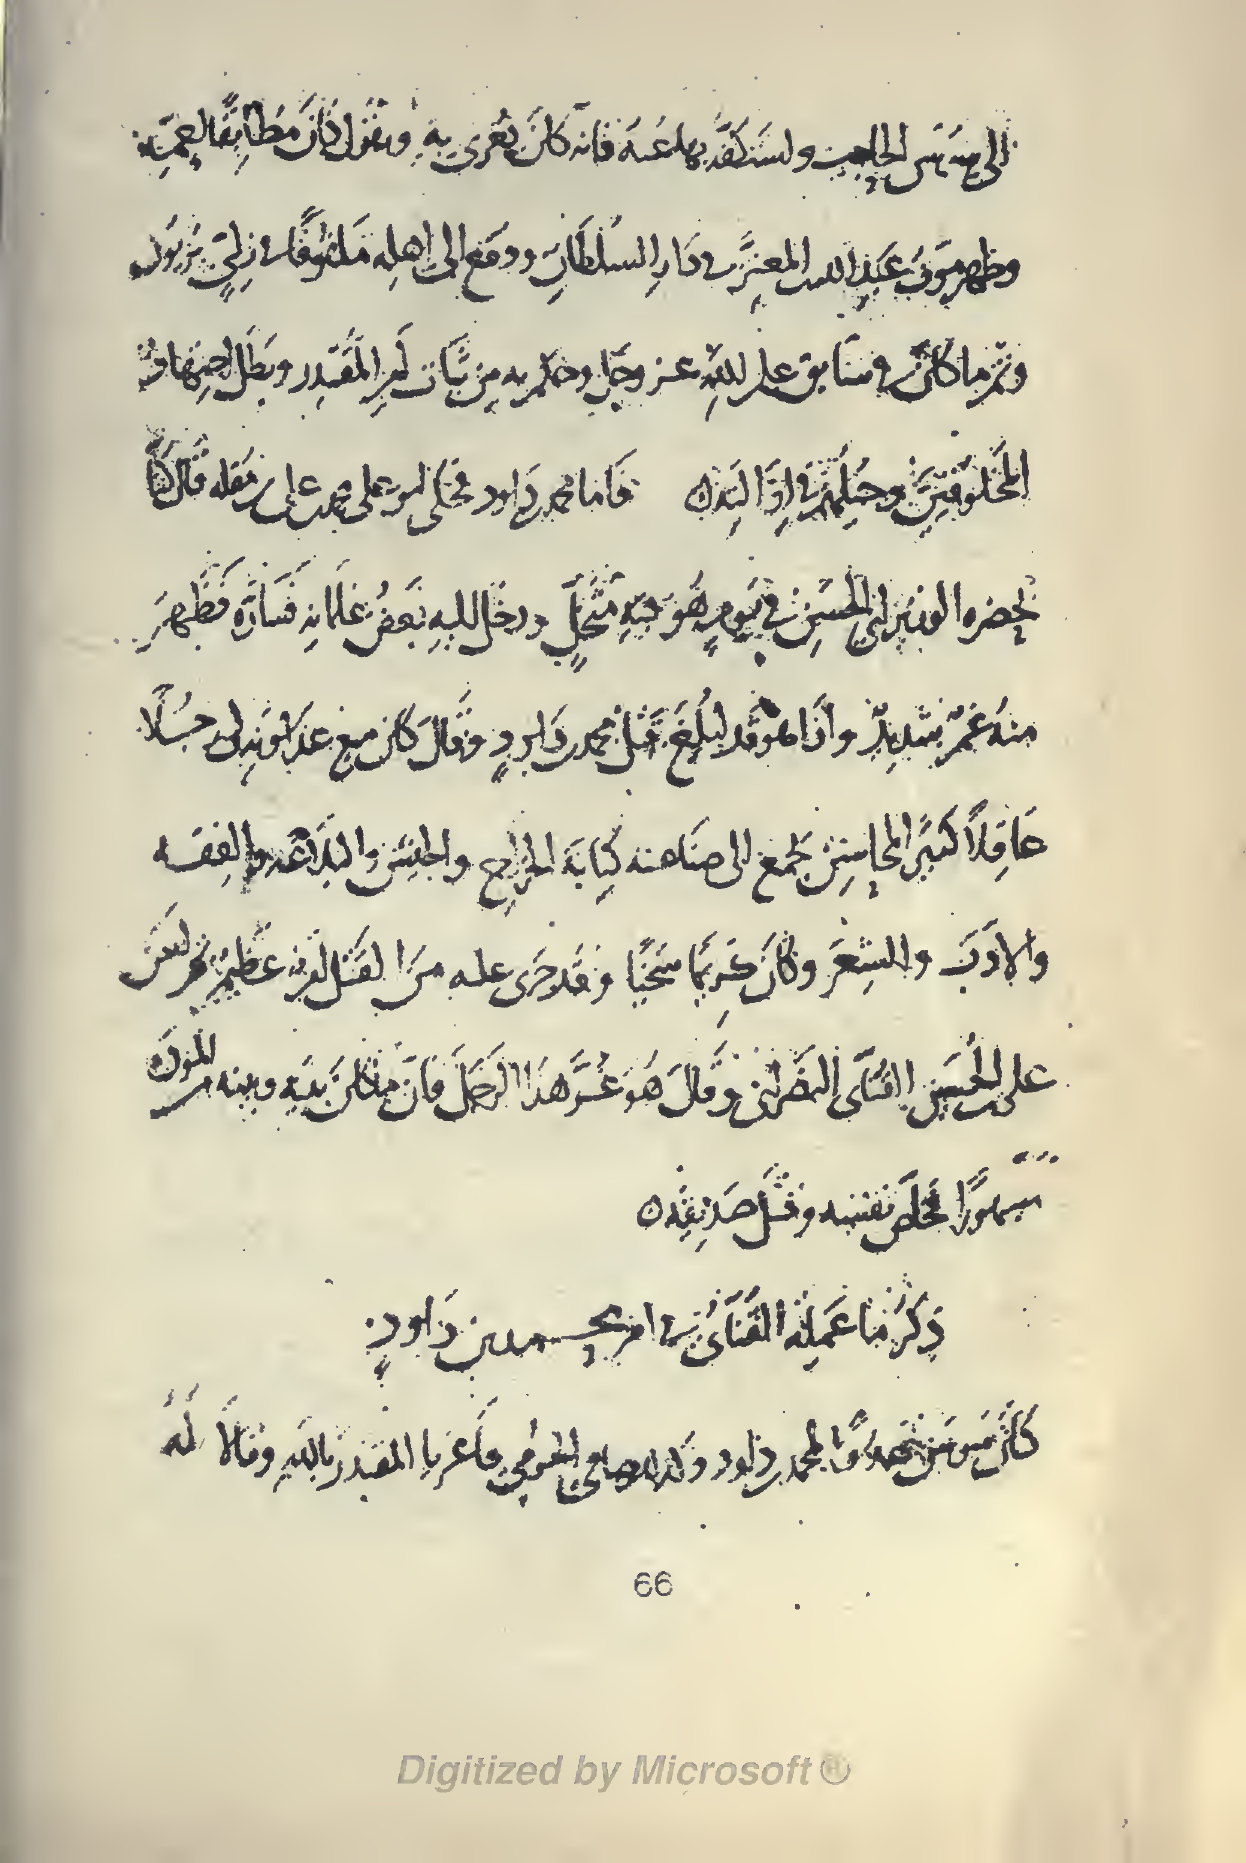 الى سوسن الحاجب وليستكفّ بها عنه فانه كان يغري به ويقول كان مطابقا لعمّه
وظهر موت عبد الله بن المعتزّ في دار السلطان ودفع الى اهله ملفوفًا في زلّيّ
وتمّ ما كان في سابق علم الله عز وجلّ وحكم به من ثبات امر المقتدر وبطل اجتهاد
المخلوقين وحيلهم في ازالته فاما محمد بن داود فحكى ابو على محمد بن على بن مقله قال كنا
بحضره الوزير ابي الحسن في يوم هو فيه متخلٍّ ودخل اليه بعض غلمانه فسارّه فظهر
منه غمّ شديد واذا هو قد ابلغ قتل محمد بن داود وقال كان مع عداوته لى رجلا
عاقلاً كثير المحاسن يجمع الى صناعته كتابة الخراج والجيش والبلاغه والفقه
والادب والشعر وكان كريمًا سخيًا وقد جرى عليه من القتل امر عظيم ثم لعن
على بن الحسين القنّائى النصراني وقال هو غرّ هذا الرجل فانّ ما كان بينه وبينه من المودّة
مشهورًا فخلّص نفسه وقتل صديقه
ذكر ما عمله القنّائى في امر محمد بن داود
كان سوسن عدوًا لمحمد بن داود وكذلك صافي الحرمي فاغريا المقتدر بالله وقالا له
66
Digitized by Microsoft ®